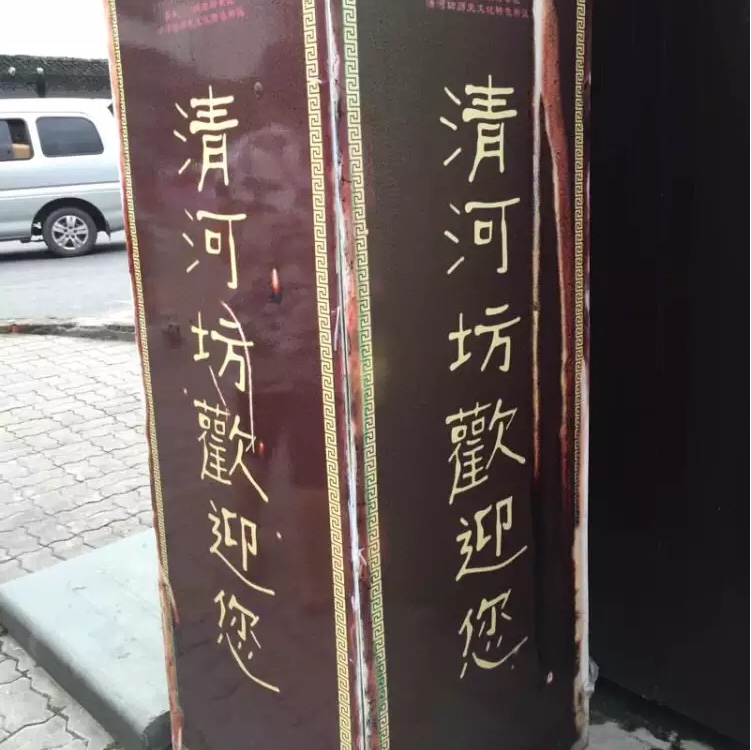 清河坊歡迎您
清河坊歡迎您